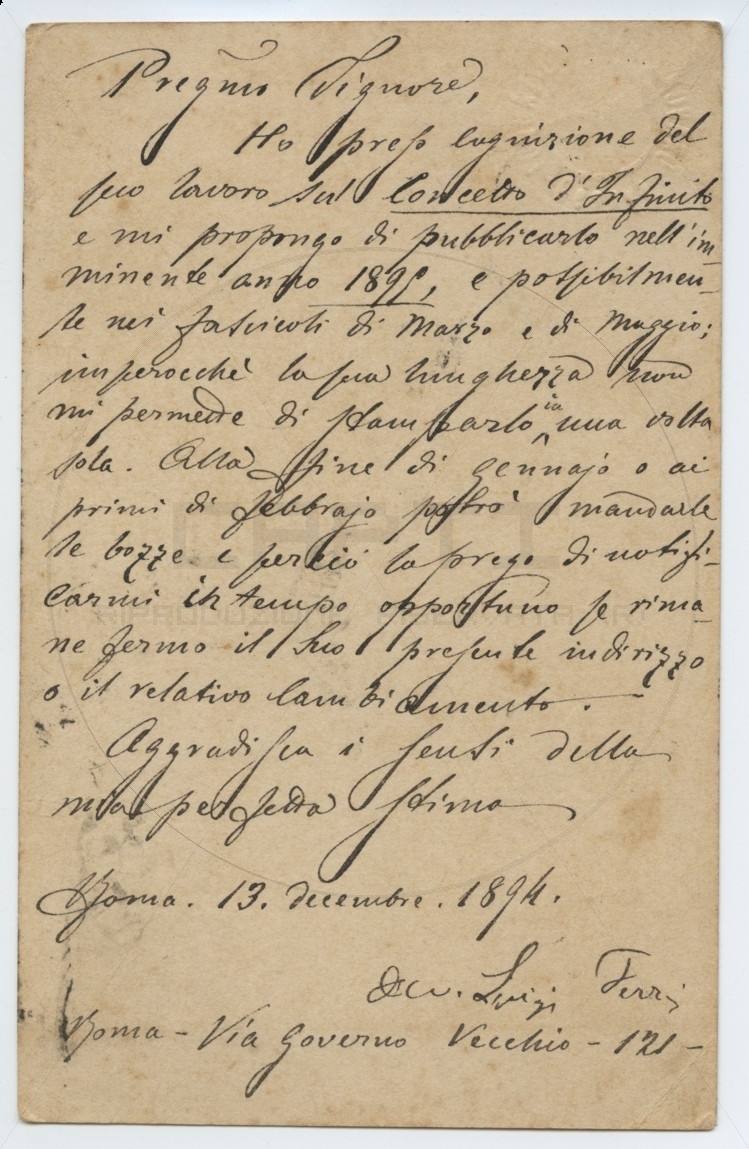 Pregmo Signore,
Ho preso cognizione del
suo lavoro sul Concetto d'Infinito
e mi propongo di pubblicarlo nell'im-
minente anno 1895, e possibilmen-
te nei fascicoli di Marzo e di Maggio;
imperocchè la sua lunghezza non
mi permette di stamparlo in una volta
sola. Alla fine di Gennajo o ai
primi di Febbrajo potrò mandarle
le bozze e perciò la prego di notifi-
carmi in tempo opportuno se rima-
ne fermo il Suo presente indirizzo
o il relativo cambiamento.
Aggradisca i sensi della
mia perfetta stima
Roma. 13. decembre. 1894.
Luigi Ferri
Roma - Via Governo Vecchio - 121 -